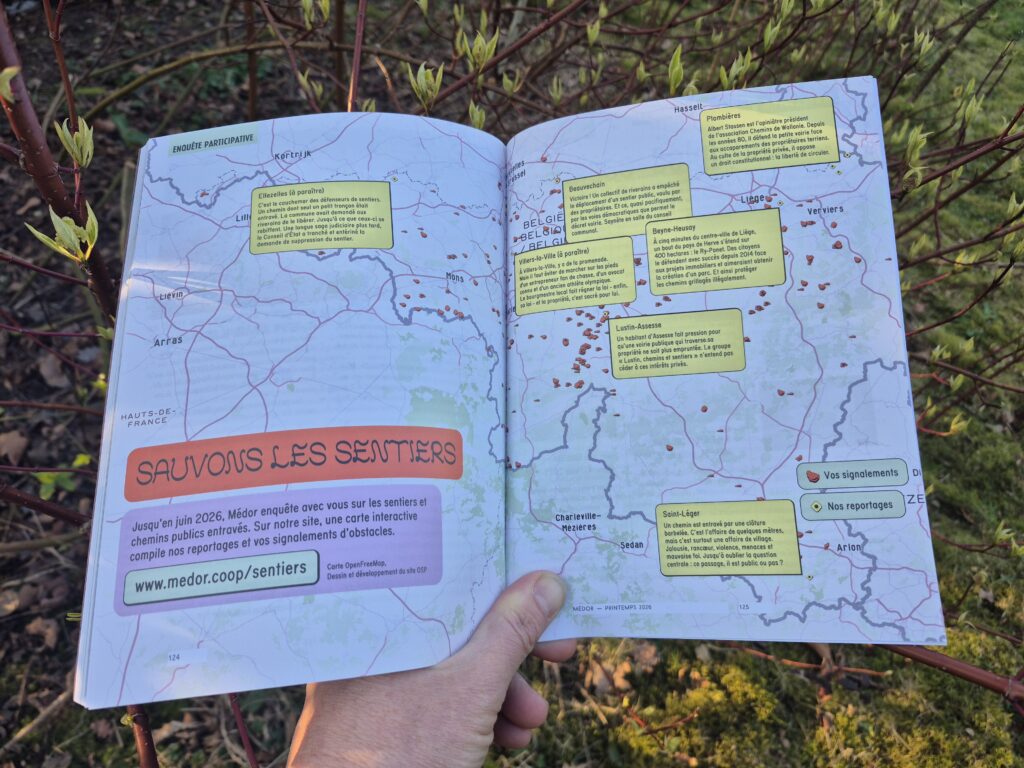 ENQUÊTE PARTICIPATIVE
Kortrijk
Ellezelles (à paraître)
C'est le cauchemar des défenseurs de sentiers.
Un chemin dont seul un arrêt français était
privé. La commune avait demandé aux
riverains de le libérer. Jusqu'à ce que ceux-ci se
rebiffent. Une longue saga judiciaire plus tard,
le Conseil d'État a tranché et entériné la
demande de suppression du sentier.
Lille
Mons
Liévin
Arras
HAUTS-DE-
FRANCE
SAUVONS LES SENTIERS
Jusqu'en juin 2026, Médor enquête avec vous sur les sentiers et
chemins publics entravés. Sur notre site, une carte interactive
compile nos reportages et vos signalements d'obstacles.
www.medor.coop/sentiers
Carte OpenFreeMap,
Dessin et développement du site OSP
124
Hasselt
Plombières
Albert Stassen est l'opiniâtre président
de l'association Chemins de Wallonie. Depuis
les années 80, il défend la petite voirie face
aux accaparements des propriétaires terriens.
Au culte de la propriété privée, il oppose
un droit constitutionnel : la liberté de circuler.
Beauvechain
Victoire ! Un collectif de riverains a empêché
le déplacement d'un sentier public, voulu par
des propriétaires. Et ce, quasi pacifiquement,
par les voies démocratiques que permet le
décret voirie. Saynète en salle du conseil
communal.
BELGIË
BELGIQUE
/ BELGIEN
Liège
Verviers
Beyne-Heusay
À cinq minutes du centre-ville de Liège,
un bout du pays de Herve s'étend sur
400 hectares : le Ry-Ponet. Des citoyens
le défendent avec succès depuis 2014 face
aux projets immobiliers et aimeraient obtenir
la création d'un parc. Et ainsi protéger
les chemins grillagés illégalement.
Villers-la-Ville (à paraître)
À Villers-la-Ville, y a de la promenade.
Mais il faut éviter de marcher sur les pieds
d'un entrepreneur fan de chasse, d'un avocat
connu et d'un ancien athlète olympique.
Le bourgmestre local fait régner la loi – enfin,
sa loi – et la propriété, c'est sacré pour lui.
Lustin-Assesse
Un habitant d'Assesse fait pression pour
qu'une voirie publique qui traverse sa
propriété ne soit plus empruntée. Le groupe
« Lustin, chemins et sentiers » n'entend pas
céder à ces intérêts privés.
Vos signalements
Nos reportages
Charleville-
Mézières
Sedan
Saint-Léger
Un chemin est entravé par une clôture
barbelée. C'est l'affaire de quelques mètres,
mais c'est surtout une affaire de village.
Jalousie, rancœur, violence, menaces et
mauvaise foi. Jusqu'à oublier la question
centrale : ce passage, il est public ou pas ?
Arlon
MÉDOR — PRINTEMPS 2026
125